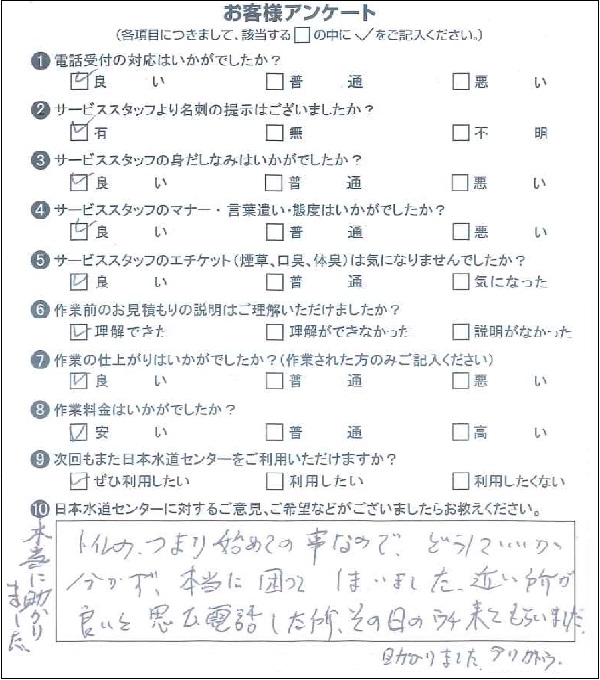 お客様アンケート
(各項目につきまして、該当する□の中に✓をご記入ください。)
❶ 電話受付の対応はいかがでしたか？
☑ 良い □ 普通 □ 悪い
❷ サービススタッフより名刺の提示はございましたか？
☑ 有 □ 無 □ 不明
❸ サービススタッフの身だしなみはいかがでしたか？
☑ 良い □ 普通 □ 悪い
❹ サービススタッフのマナー・言葉遣い・態度はいかがでしたか？
☑ 良い □ 普通 □ 悪い
❺ サービススタッフのエチケット(煙草、口臭、体臭)は気になりませんでしたか？
☑ 良い □ 普通 □ 気になった
❻ 作業前のお見積もりの説明はご理解いただけましたか？
☑ 理解できた □ 理解ができなかった □ 説明がなかった
❼ 作業の仕上がりはいかがでしたか？(作業された方のみご記入ください)
☑ 良い □ 普通 □ 悪い
❽ 作業料金はいかがでしたか？
☑ 安い □ 普通 □ 高い
❾ 次回もまた日本水道センターをご利用いただけますか？
☑ ぜひ利用したい □ 利用したい □ 利用したくない
❿ 日本水道センターに対するご意見、ご希望などがございましたらお教えください。
トイレの、つまり始めての事なので、どうしていいか
分からず、本当に困って しまいました、近い所が
良いと思い電話した所、その日のうち来てもらいました。
助かりました、アリがとう。
本当に助かり
ました